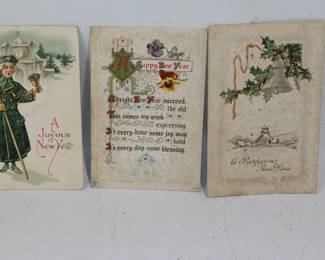 A
Joyous
New Yea
A Happy New Year
A bright New Year succeed
the old
This comes my wish
expressing
It's every hour some joy may
hold
It's every day some blessing.
A Prosperous
New Year